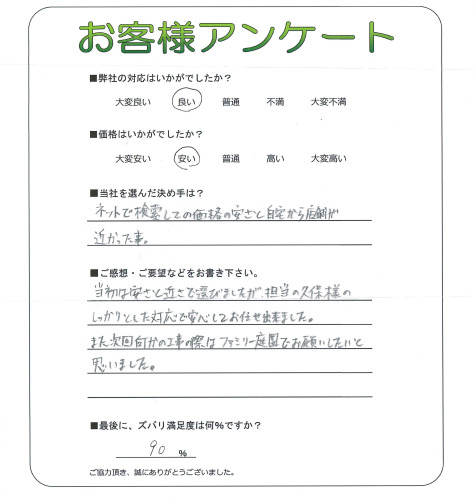 お客様アンケート
■弊社の対応はいかがでしたか？
大変良い 良い 普通 不満 大変不満
■価格はいかがでしたか？
大変安い 安い 普通 高い 大変高い
■当社を選んだ決め手は？
ネットで検索しての価格の安さと自宅から店舗が
近かった事。
■ご感想・ご要望などをお書き下さい。
当初は安さと近さで選びましたが、担当の久保様の
しっかりとした対応で安心してお任せ出来ました。
また次回何かの工事の際はファミリー庭園でお願いしたいと
思いました。
■最後に、ズバリ満足度は何%ですか？
90 %
ご協力頂き、誠にありがとうございました。